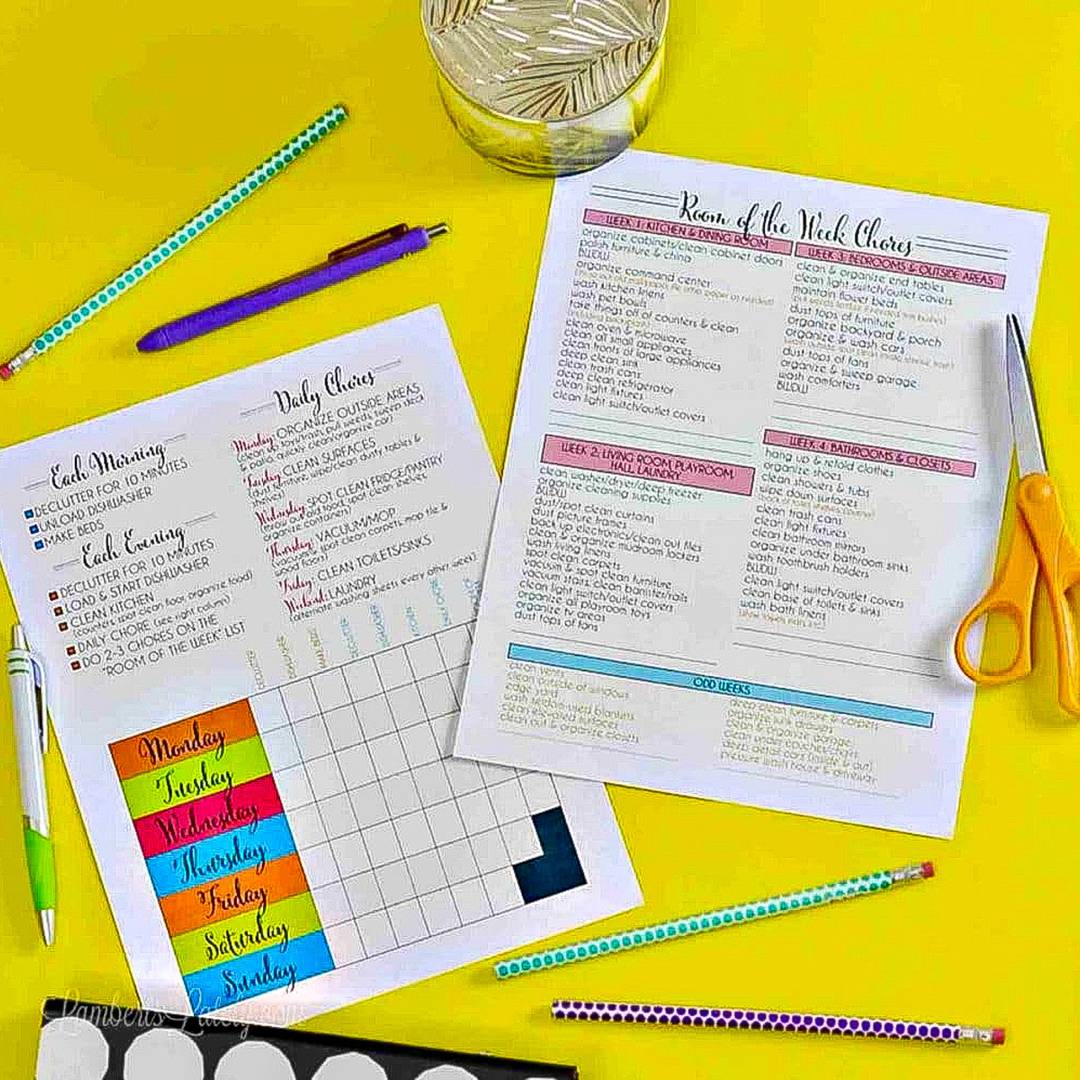 Each Morning
DECLUTTER FOR 10 MINUTES
UNLOAD DISHWASHER
MAKE BEDS
Each Evening
DECLUTTER FOR 10 MINUTES
LOAD & START DISHWASHER
CLEAN KITCHEN
(counters, spot clean floor, organize food)
DAILY CHORE (see right column)
DO 2-3 CHORES ON THE
"ROOM OF THE WEEK" LIST
Daily Chores
Monday: ORGANIZE OUTSIDE AREAS
(clean up toys/trash, pull weeds, sweep deck
& patio, quickly clean/organize car)
Tuesday: CLEAN SURFACES
(dust furniture, wipe/clean dusty tables &
shelves)
Wednesday: SPOT CLEAN FRIDGE/PANTRY
(throw out old food, spot clean shelves,
organize containers)
Thursday: VACUUM/MOP
(vacuum & spot clean carpets, mop tile &
wood floors)
Friday: CLEAN TOILETS/SINKS
Weekend: LAUNDRY
(alternate washing sheets every other week)
DECLUTTER
DISHWASHER
MAKE BEDS
DECLUTTER
DISHWASHER
KITCHEN
Monday
Tuesday
Wednesday
Thursday
Friday
Saturday
Sunday
Room of the Week Chores
WEEK 1: KITCHEN & DINING ROOM
organize cabinets/clean cabinet doors
polish furniture & china
BWDW
organize command center
wash kitchen linens
wash pet bowls
take things off of counters & clean
clean oven & microwave
clean all small appliances
clean fronts of large appliances
deep clean sink
clean trash cans
deep clean refrigerator
clean light fixtures
clean light switch/outlet covers
WEEK 3: BEDROOMS & OUTSIDE AREAS
clean & organize end tables
clean light switch/outlet covers
maintain flower beds
dust tops of furniture
organize backyard & porch
organize & wash cars
dust tops of fans
organize & sweep garage
wash comforters
BWDW
WEEK 2: LIVING ROOM, PLAYROOM,
HALL, LAUNDRY
clean washer/dryer/deep freezer
organize cleaning supplies
BWDW
dust/spot clean curtains
dust picture frames
back up electronics/clean out files
clean & organize mudroom lockers
wash living linens
spot clean carpets
vacuum & spot clean furniture
vacuum stairs, clean banister/rails
clean light switch/outlet covers
organize all playroom toys
organize tv areas
dust tops of fans
WEEK 4: BATHROOMS & CLOSETS
hang up & refold clothes
organize shoes
clean showers & tubs
wipe down surfaces
clean trash cans
clean light fixtures
clean bathroom mirrors
organize under bathroom sinks
wash toothbrush holders
BWDW
clean light switch/outlet covers
clean base of toilets & sinks
wash bath linens
ODD WEEKS
clean vents
clean outside of windows
edge yard
wash seldom-used blankets
clean tiled surfaces
clean out & organize closets
deep clean furniture & carpets
clean under couches/beds
deep detail cars (inside & out)
pressure wash house & driveway
LambertsLately.com